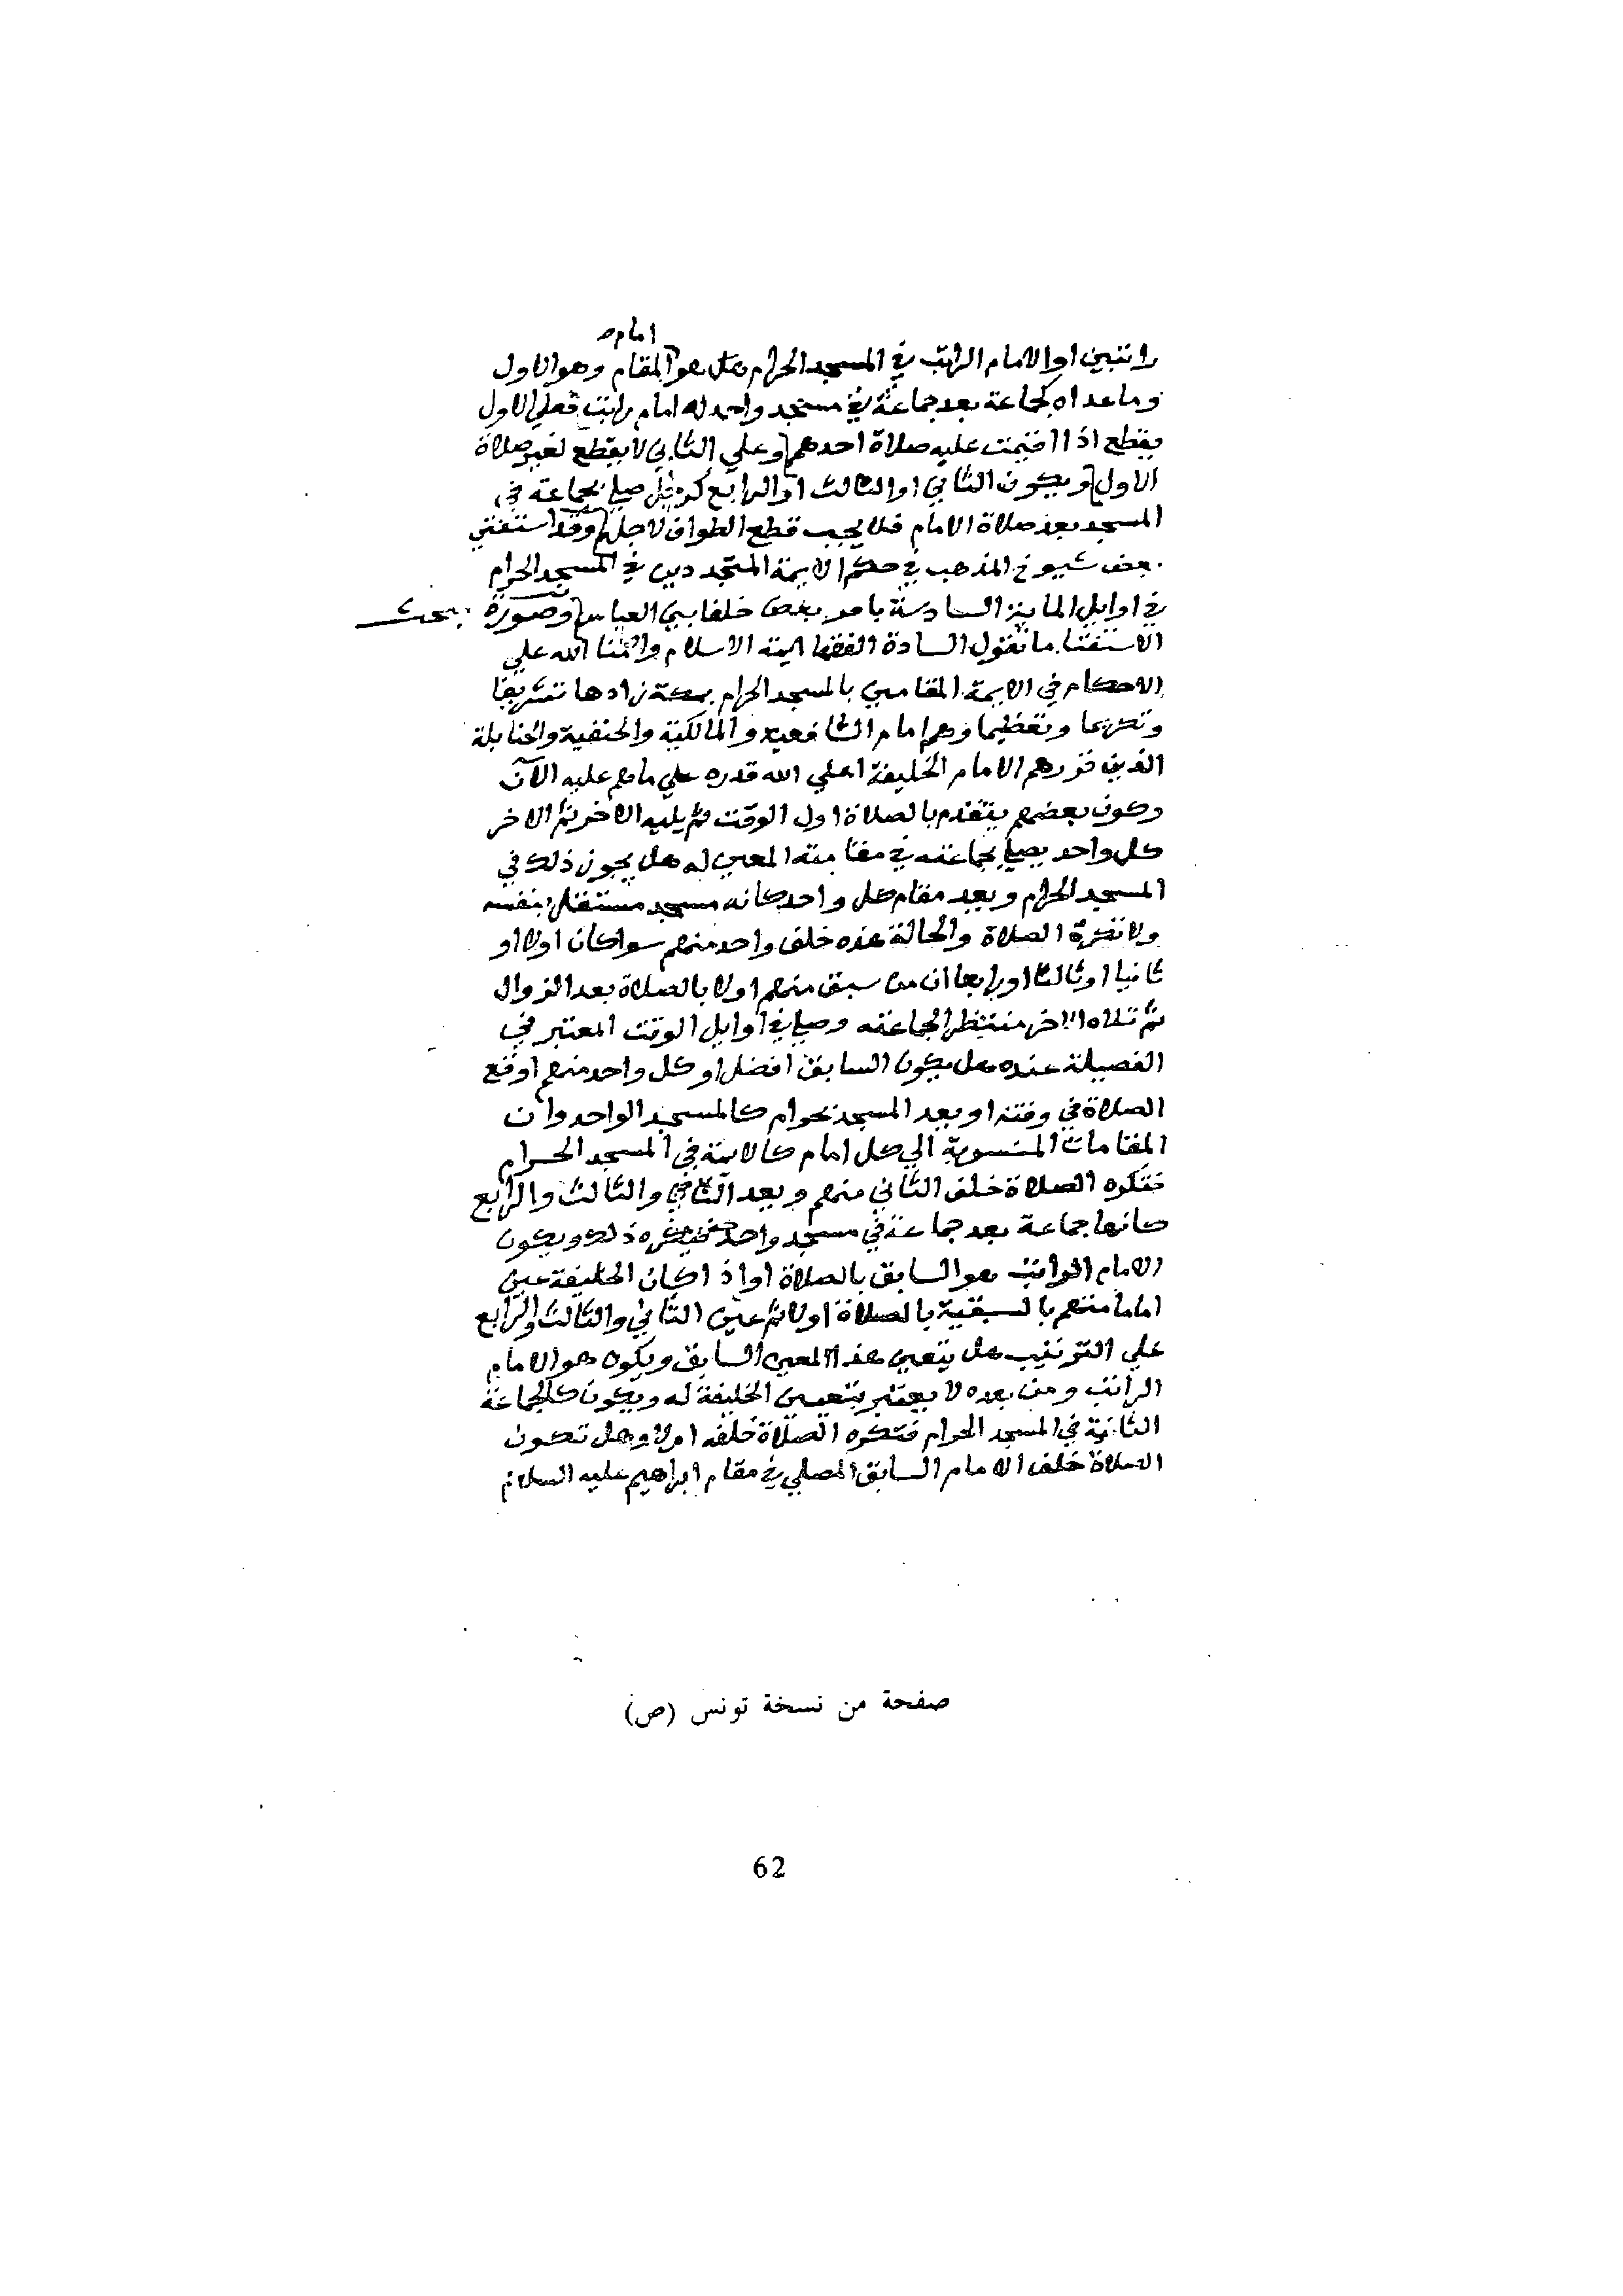 امام صـ
راتبين او الامام الراتب في المسجد الحرام هل هو المقام وهو الاول
وما عداه كجماعة بعد جماعة في مسجد واحد له امام راتب فعلي الاول
يقطع اذا اقيمت عليه صلاة احدهم وعلي الثاني لا يقطع لغير صلاة
الاول ويكون الثاني او الثالث او الرابع كرجل صلي بجماعة في
المسجد بعد صلاة الامام فلا يجب قطع الطواف لاجله وقد استفتي
بعض شيوخ المذهب في حكم الايمة المتجددين في المسجد الحرام
في اوايل الماية السادسة بامر بعض خلفا بني العباس وصورة بحث
الاستفتا ما تقول السادة الفقها ايمة الاسلام وامنا الله علي
الاحكام في الايمة المقامين بالمسجد الحرام بمكة زادها تشريفا
وتكريما وتعظيما وهم امام الشافعية والمالكية والحنفية والحنابلة
الذين قررهم الامام الخليفة اعلي الله قدره علي ما هم عليه الآن
وكون بعضهم يتقدم بالصلاة اول الوقت ثم يليه الاخر ثم الاخر
كل واحد يصلي بجماعته في مقامته المعين له هل يجوز ذلك في
المسجد الحرام ويعد مقام كل واحد كانه مسجد مستقل بنفسه
ولا تكره الصلاة والحالة هذه خلف واحد منهم سوا كان اولا او
ثانيا او ثالثا او رابعا ان من سبق منهم اولا بالصلاة بعد الزوال
ثم تلاه الاخر منتظر الجماعته وصلي في اوايل الوقت المعتبر في
الفضيلة عنده هل يكون السابق افضل او كل واحد منهم اوقع
الصلاة في وقته او يعد المسجد الحرام كالمسجد الواحد وان
المقامات المنسوبة الي كل امام كالايمة في المسجد الحرام
فتكره الصلاة خلف الثاني منهم ويعد الثاني والثالث والرابع
كانها جماعة بعد جماعة في مسجد واحد فيكره ذلك ويكون
الامام الراتب هو السابق بالصلاة او اذا كان الخليفة عين
اماما منهم بالسبقية بالصلاة اولا ثم عين الثاني والثالث والرابع
علي الترتيب هل يتعين هذا المعين السابق ويكون هو الامام
الراتب ومن بعده لا يعتبر بتعيين الخليفة له ويكون كالجماعة
الثانية في المسجد الحرام فتكره الصلاة خلفه ام لا وهل تكون
الصلاة خلف الامام السابق المصلي في مقام ابراهيم عليه السلام
صفحة من نسخة تونس (ص)
62